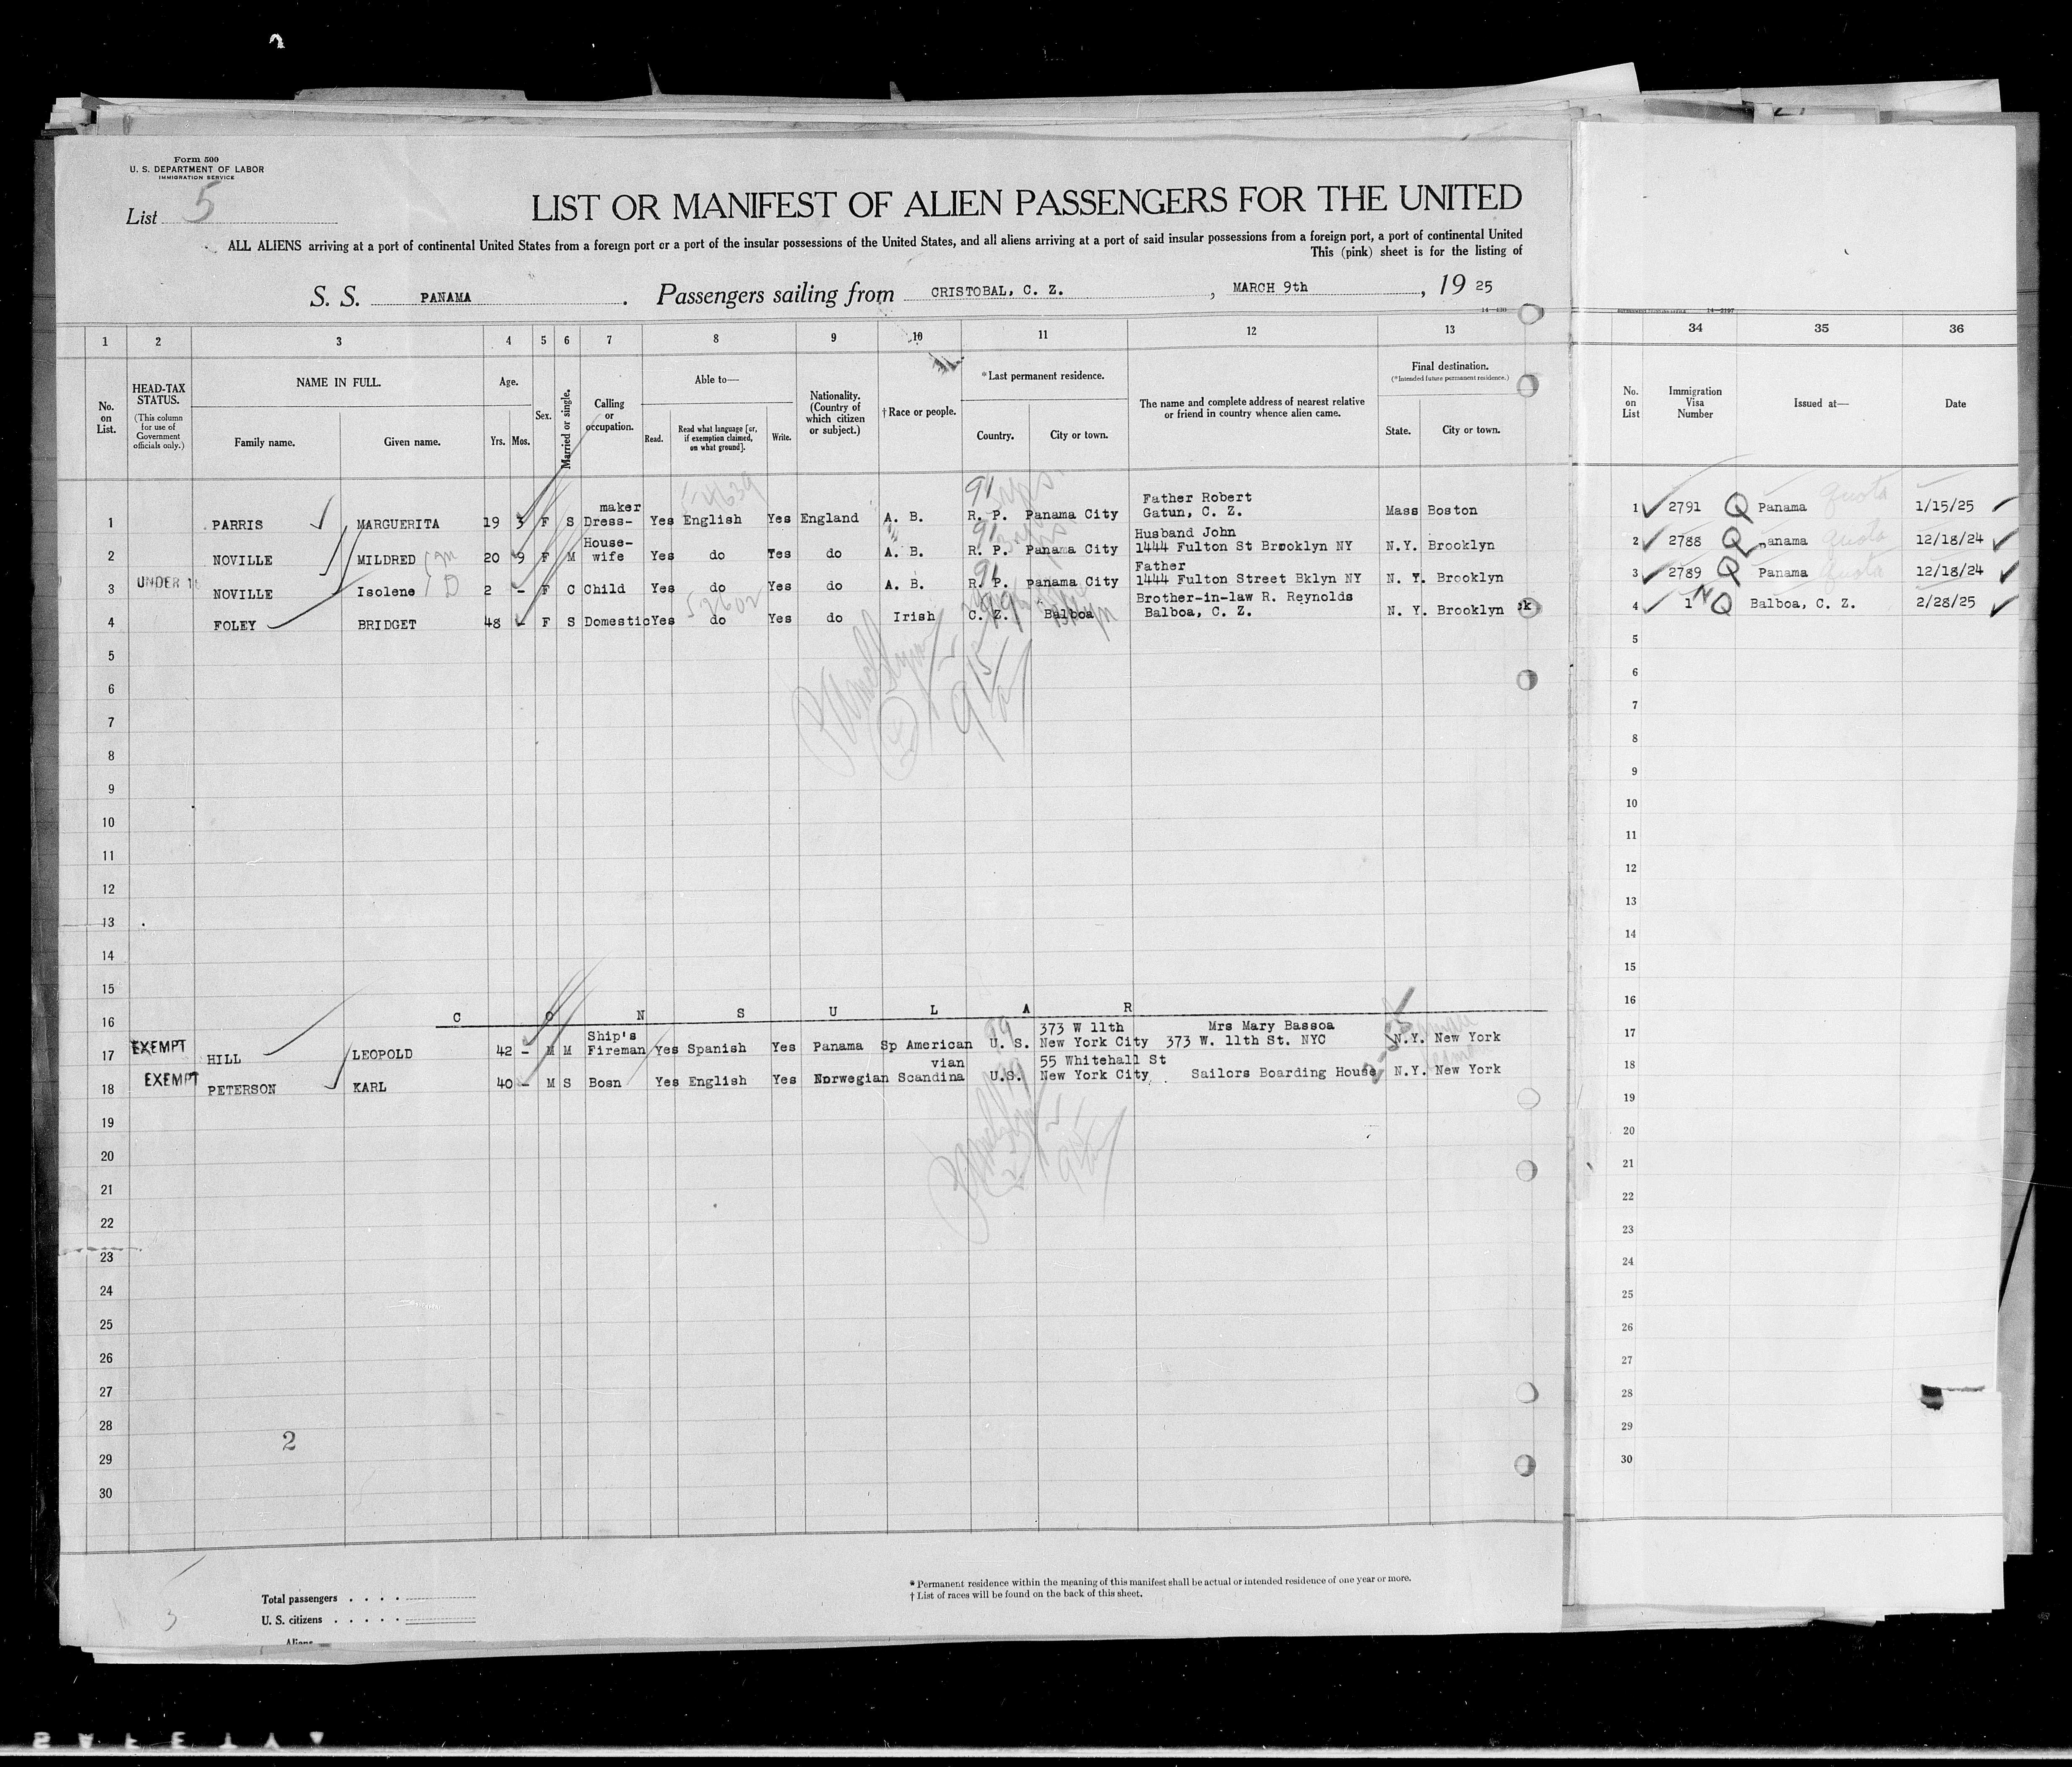 Form 500
U. S. DEPARTMENT OF LABOR
IMMIGRATION SERVICE
List 5
LIST OR MANIFEST OF ALIEN PASSENGERS FOR THE UNITED
ALL ALIENS arriving at a port of continental United States from a foreign port or a port of the insular possessions of the United States, and all aliens arriving at a port of said insular possessions from a foreign port, a port of continental United
This (pink) sheet is for the listing of
S. S. PANAMA. Passengers sailing from CRISTOBAL, C. Z., MARCH 9th, 19 25
14—430
14—2197
1 2 3 4 5 6 7 8 9 10 11 12 13 34 35 36
No. on List.
HEAD-TAX STATUS.
(This column for use of Government officials only.)
NAME IN FULL.
Family name. Given name.
Age.
Yrs. Mos.
Sex.
Married or single.
Calling or occupation.
Able to—
Read. Read what language [or, if exemption claimed, on what ground]. Write.
Nationality. (Country of which citizen or subject.)
†Race or people.
*Last permanent residence.
Country. City or town.
The name and complete address of nearest relative or friend in country whence alien came.
Final destination.
(*Intended future permanent residence.)
State. City or town.
No. on List
Immigration Visa Number
Issued at—
Date
1 PARRIS MARGUERITA 19 3 F S Dress-maker Yes English Yes England A. B. R. P. Panama City Father Robert Gatun, C. Z. Mass Boston 1 2791 Q Panama quota 1/15/25
2 NOVILLE MILDRED 20 9 F M House-wife Yes do Yes do A. B. R. P. Panama City Husband John 1444 Fulton St Brooklyn NY N.Y. Brooklyn 2 2788 Q Panama quota 12/18/24
3 UNDER 1 NOVILLE Isolene 2 - F C Child Yes do Yes do A. B. R. P. Panama City Father 1444 Fulton Street Bklyn NY N. Y. Brooklyn 3 2789 Q Panama quota 12/18/24
4 FOLEY BRIDGET 48 - F S Domestic Yes do Yes do Irish C. Z. Balboa Brother-in-law R. Reynolds Balboa, C. Z. N. Y. Brooklyn 4 1 NQ Balboa, C. Z. 2/28/25
91
91
91
99
5 5
6 6
7 7
8 8
9 9
10 10
11 11
12 12
13 13
14 14
15 15
16 C O N S U L A R 16
17 EXEMPT HILL LEOPOLD 42 - M M Ship's Fireman Yes Spanish Yes Panama Sp American U. S. 373 W 11th New York City Mrs Mary Bassoa 373 W. 11th St. NYC N.Y. New York 17
18 EXEMPT PETERSON KARL 40 - M S Bosn Yes English Yes Norwegian Scandinavian U.S. 55 Whitehall St New York City Sailors Boarding House N.Y. New York 18
19 19
20 20
21 21
22 22
23 23
24 24
25 25
26 26
27 27
28 28
2
29 29
30 30
Total passengers
U. S. citizens
Aliens
3
* Permanent residence within the meaning of this manifest shall be actual or intended residence of one year or more.
† List of races will be found on the back of this sheet.
SAFETY